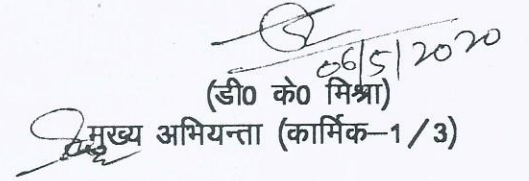 06/5/2020
(डी0 के0 मिश्रा)
मुख्य अभियन्ता (कार्मिक–1/3)